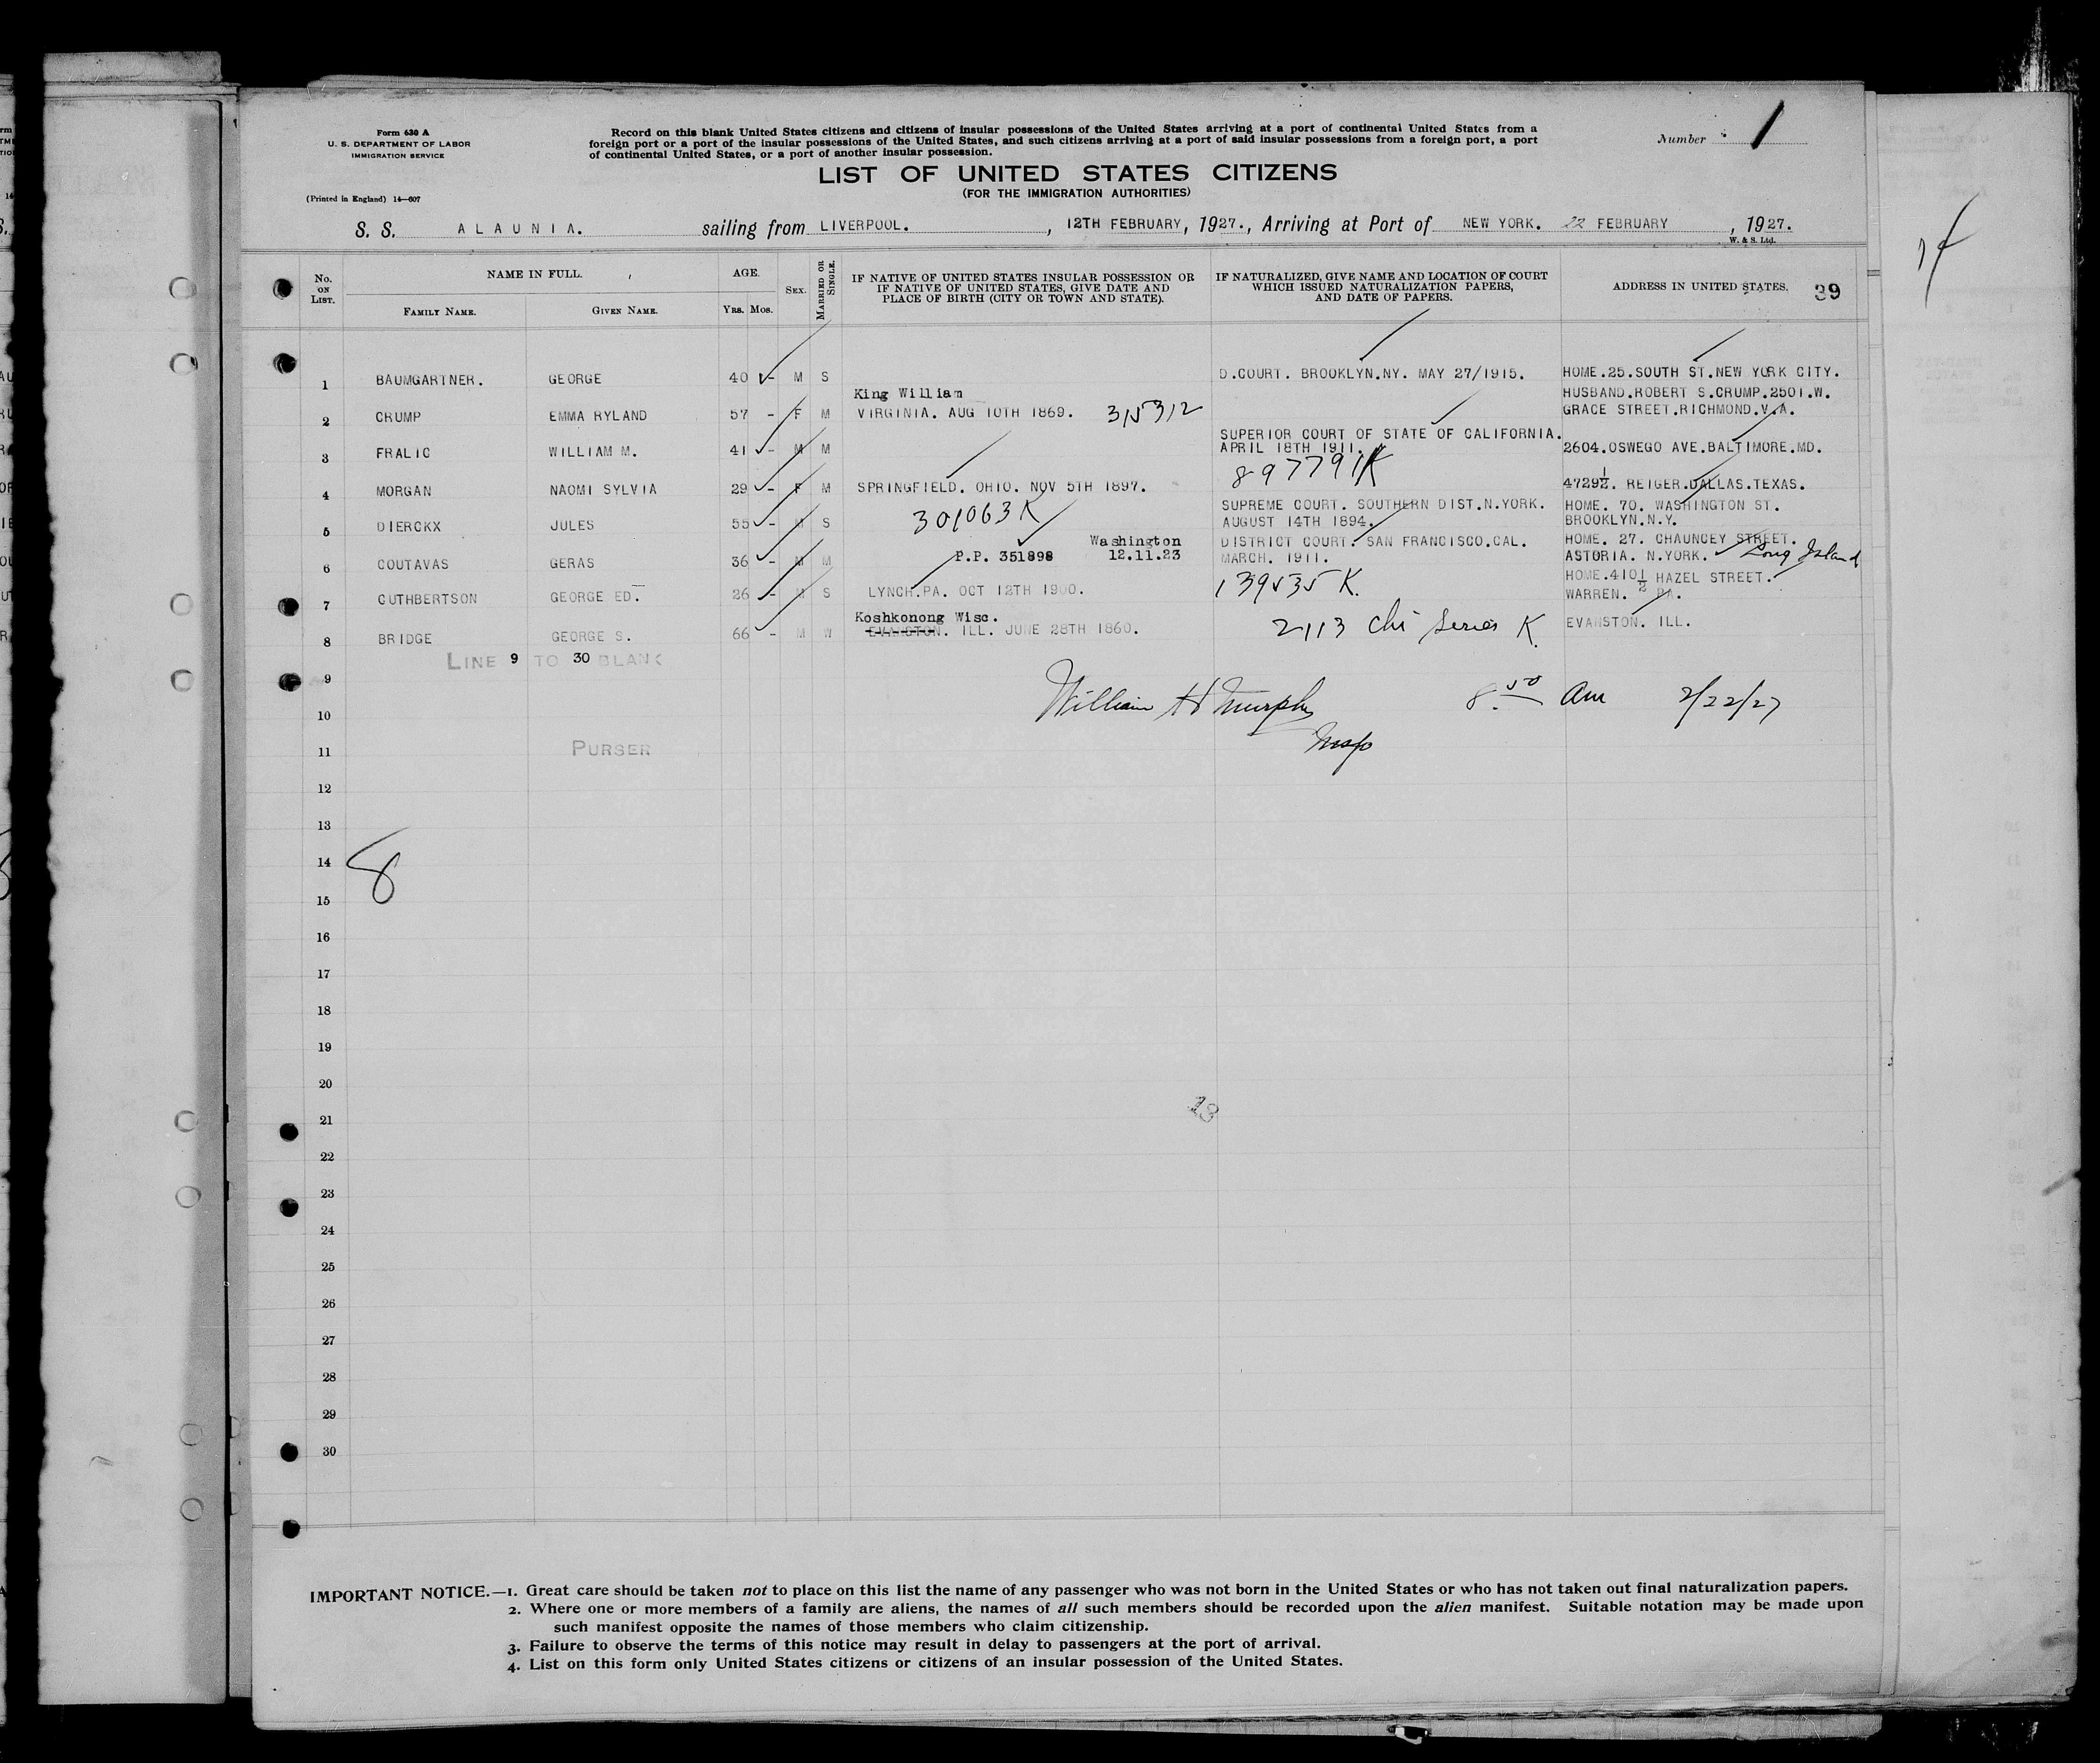 Form 630 A
U. S. DEPARTMENT OF LABOR
IMMIGRATION SERVICE
(Printed in England) 14—607
Record on this blank United States citizens and citizens of insular possessions of the United States arriving at a port of continental United States from a
foreign port or a port of the insular possessions of the United States, and such citizens arriving at a port of said insular possessions from a foreign port, a port
of continental United States, or a port of another insular possession.
Number 1
LIST OF UNITED STATES CITIZENS
(FOR THE IMMIGRATION AUTHORITIES)
S. S. ALAUNIA. sailing from LIVERPOOL. , 12TH FEBRUARY, 1927., Arriving at Port of NEW YORK. 22 FEBRUARY , 1927.
W. & S. Ltd.
No. ON LIST.
NAME IN FULL.
FAMILY NAME. GIVEN NAME.
AGE.
YRS. MOS.
SEX.
MARRIED OR SINGLE.
IF NATIVE OF UNITED STATES INSULAR POSSESSION OR
IF NATIVE OF UNITED STATES, GIVE DATE AND
PLACE OF BIRTH (CITY OR TOWN AND STATE).
IF NATURALIZED, GIVE NAME AND LOCATION OF COURT
WHICH ISSUED NATURALIZATION PAPERS,
AND DATE OF PAPERS.
ADDRESS IN UNITED STATES. 39
1 BAUMGARTNER. GEORGE 40 - M S D.COURT. BROOKLYN.NY. MAY 27/1915. HOME.25.SOUTH ST.NEW YORK CITY.
King William HUSBAND.ROBERT S.CRUMP.2501.W.
2 CRUMP EMMA RYLAND 57 - F M VIRGINIA. AUG 10TH 1869. 315312 GRACE STREET.RICHMOND.V.A.
SUPERIOR COURT OF STATE OF CALIFORNIA.
3 FRALIC WILLIAM M. 41 - M M APRIL 18TH 1911. 2604.OSWEGO AVE.BALTIMORE.MD.
897791K
4 MORGAN NAOMI SYLVIA 29 - F M SPRINGFIELD. OHIO. NOV 5TH 1897. 4729½. REIGER.DALLAS.TEXAS.
301063K
SUPREME COURT. SOUTHERN DIST.N.YORK. HOME. 70. WASHINGTON ST.
5 DIERCKX JULES 55 - M S AUGUST 14TH 1894. BROOKLYN.N.Y.
Washington DISTRICT COURT. SAN FRANCISCO.CAL. HOME. 27. CHAUNCEY STREET.
6 COUTAVAS GERAS 36 - M M P.P. 351898 12.11.23 MARCH. 1911. ASTORIA. N.YORK. Long Island
139535 K. HOME.410½ HAZEL STREET.
7 CUTHBERTSON GEORGE ED. 26 - M S LYNCH.PA. OCT 12TH 1900. WARREN. PA.
Koshkonong Wisc.
8 BRIDGE GEORGE S. 66 - M W EVANSTON. ILL. JUNE 28TH 1860. 2113 Chi Series K. EVANSTON. ILL.
LINE 9 TO 30 BLANK
9
William H Murphy 8.50 Am 2/22/27
10
Insp
11 PURSER
12
13
14
8
15
16
17
18
19
20
13
21
22
23
24
25
26
27
28
29
30
IMPORTANT NOTICE.—1. Great care should be taken not to place on this list the name of any passenger who was not born in the United States or who has not taken out final naturalization papers.
2. Where one or more members of a family are aliens, the names of all such members should be recorded upon the alien manifest. Suitable notation may be made upon
such manifest opposite the names of those members who claim citizenship.
3. Failure to observe the terms of this notice may result in delay to passengers at the port of arrival.
4. List on this form only United States citizens or citizens of an insular possession of the United States.